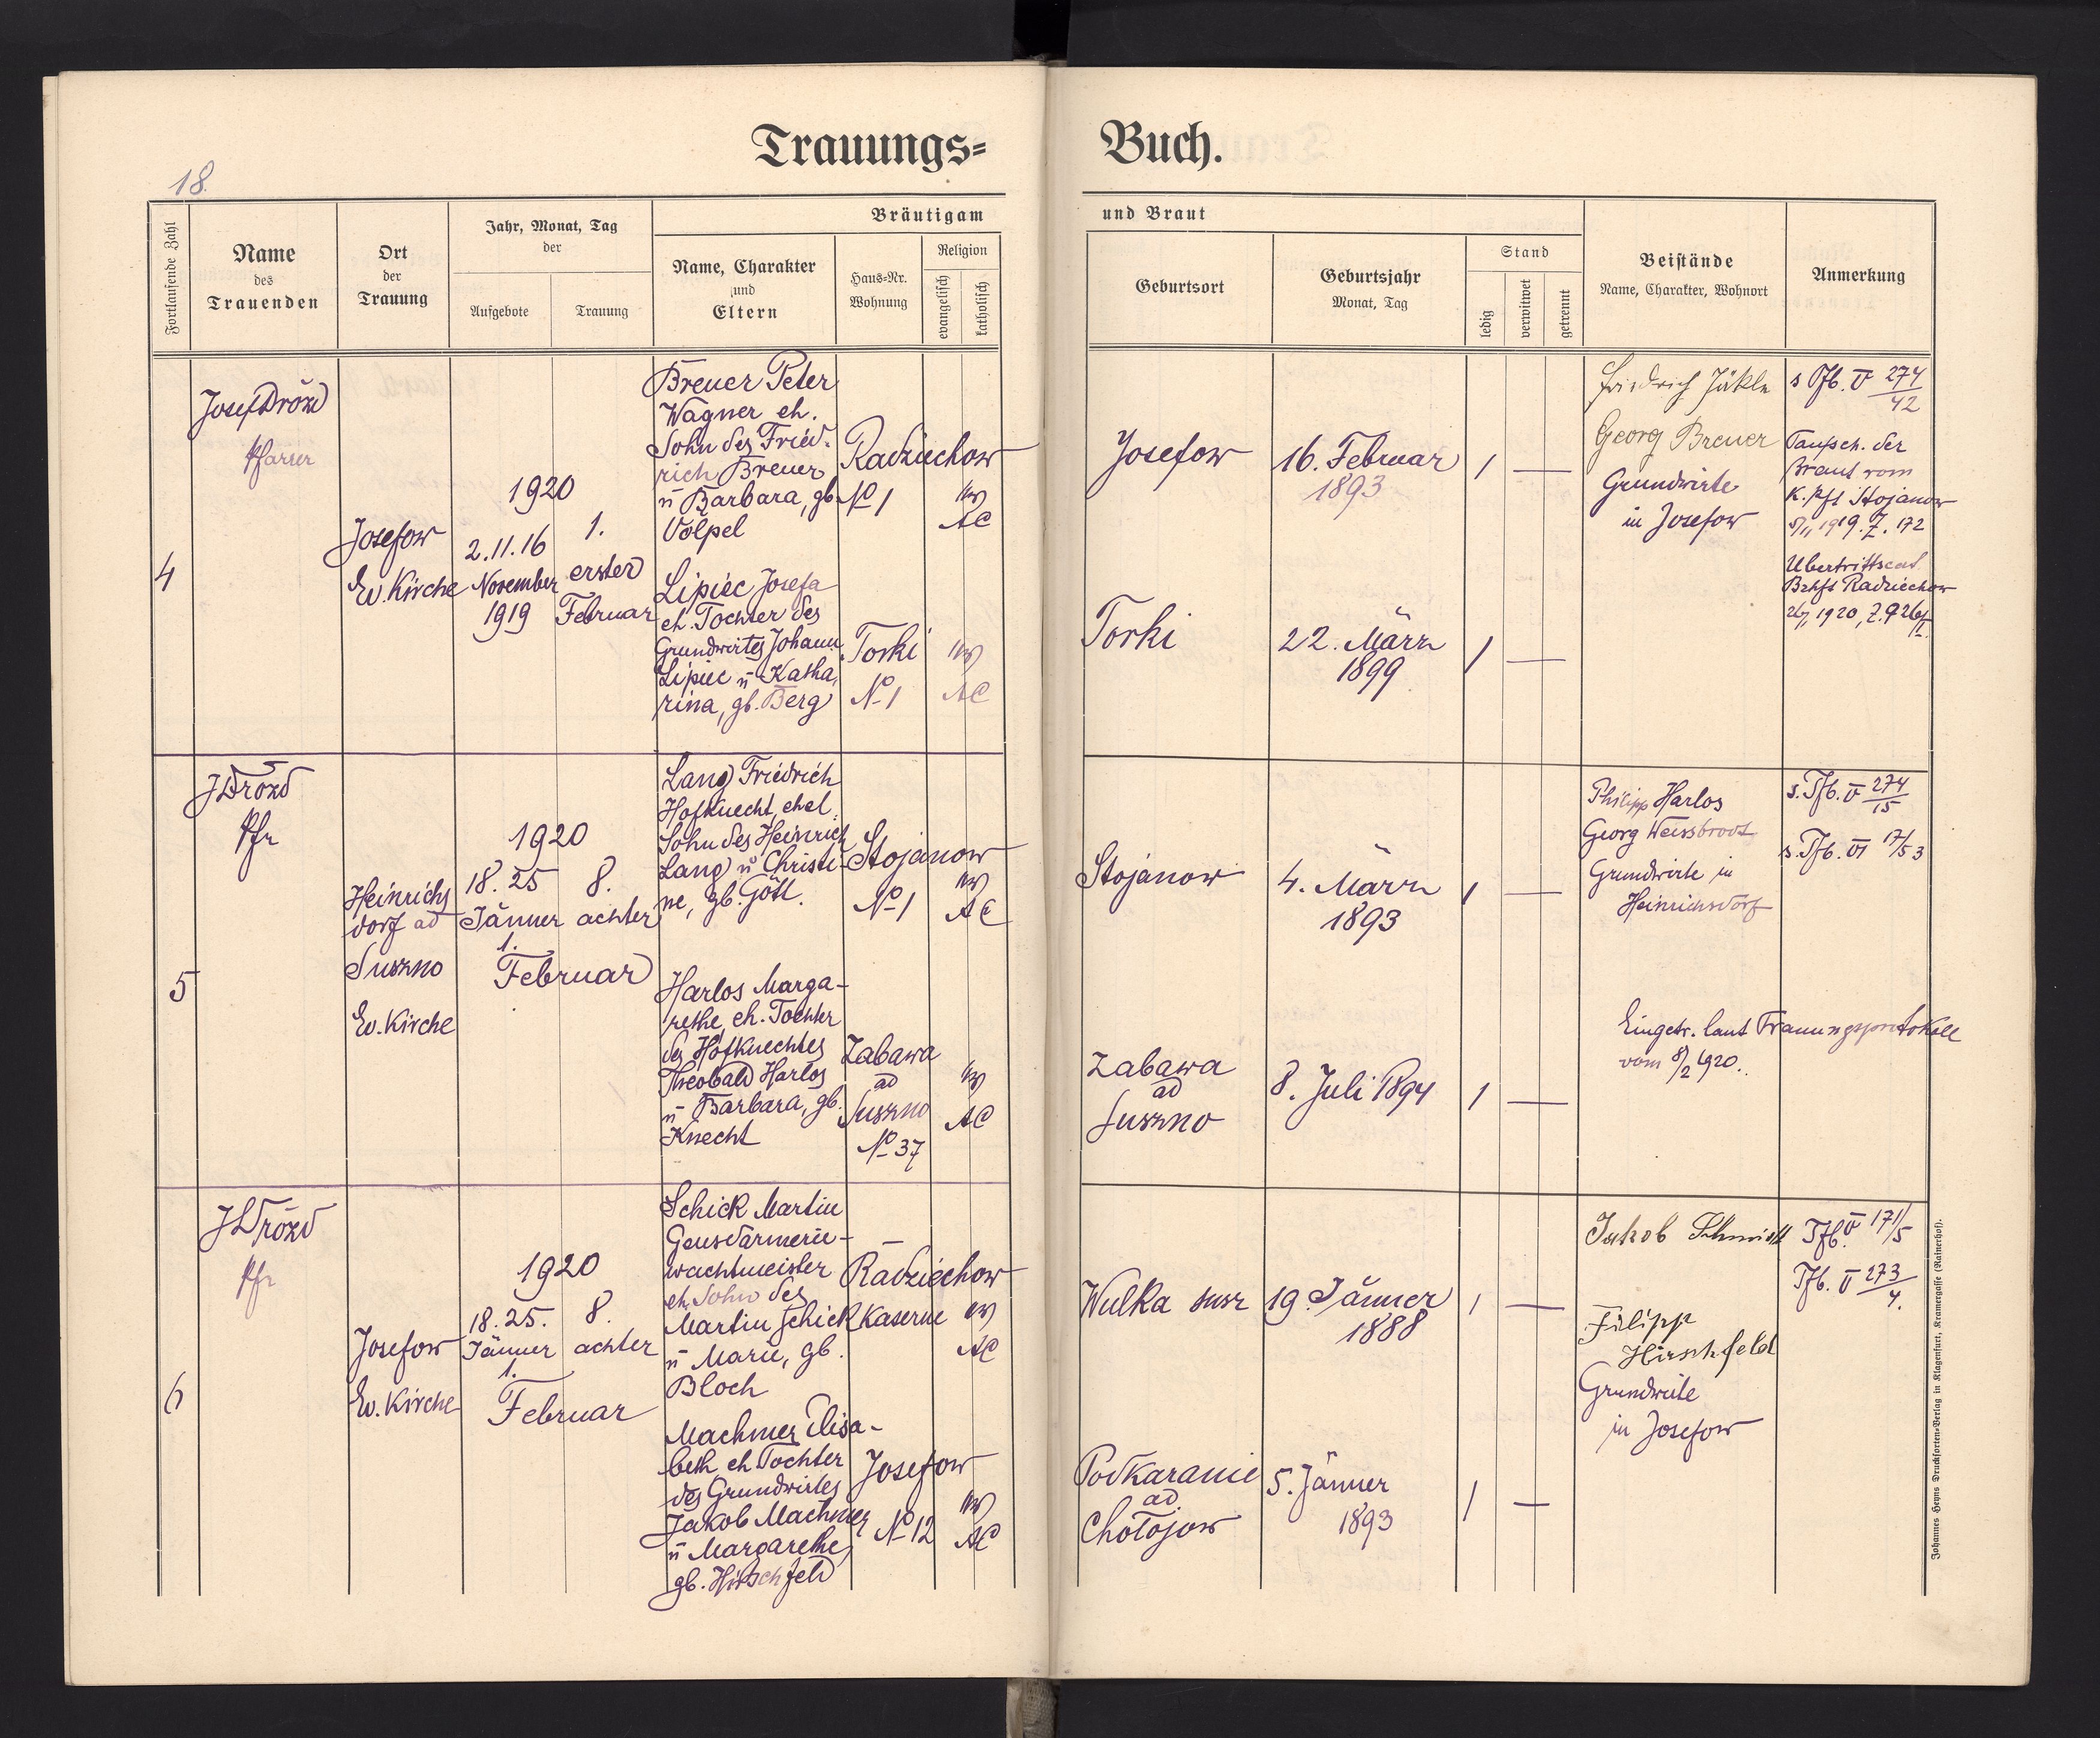 Trauungs=
Buch.
18.
Fortlaufende Zahl
Name
des
Trauenden
Ort
der
Trauung
Jahr, Monat, Tag
der
Aufgebote
Trauung
Bräutigam
Name, Charakter
und
Eltern
Haus=Nr.
Wohnung
Religion
evangelisch
katholisch
und Braut
Geburtsort
Geburtsjahr
Monat, Tag
Stand
ledig
verwitwet
getrennt
Beistände
Name, Charakter, Wohnort
Anmerkung
4
Josef Drozd
Pfarrer
Josefow
Ev. Kirche
1920
2.11.16
November
1919
1.
erster
Februar
Breuer Peter
Wagner eh.
Sohn des Fried-
rich Breuer
u Barbara, gb.
Volpel
Radziechow
No 1
ev
AC
Josefow
16. Februar
1893
1 —
Friedrich Jäkle
Georg Breuer
Grundwirte
in Josefow
s Tfb. V 274/42
Taufsch. der
Braut vom
K. Pft Stojanow
5/11 1919. Z. 172
Lipiec Josefa
eh. Tochter des
Grundwirtes Johann
Lipiec u Katha-
rina, gb. Berg
Torki
No 1
ev
AC
Torki
22. März
1899
1 —
Bzhft Radziechow
5
J Drozd
Pfr
Heinrichs
dorf ad
Suszno
Ev. Kirche
1920
18. 25
Jänner
1.
Februar
8.
achter
Lang Friedrich
Hofknecht, ehel.
Sohn des Heinrich
Lang u Christi-
ne, gb. Götl.
Stojanow
No 1
ev
AC
Stojanow
4. März
1893
1 —
Philipp Harlos
Georg Weissbrodt
Grundwirte in
Heinrichsdorf
s. Tfb. V 274/15
s. Tfb. VI 17/53
Harlos Marga-
rethe, eh. Tochter
des Hofknechtes
Theobald Harlos
u Barbara, gb.
Knecht
Zabawa
ad
Suszno
No 37
ev
AC
Zabawa
ad
Suszno
8. Juli 1894
1 —
Eingetr. laut Trauungsprotokoll
vom 8/2 1920.
6
J Drozd
Pfr
Josefow
Ev. Kirche
1920
18. 25.
Jänner
1.
Februar
8.
achter
Schick Martin
Gensdarmerie-
wachtmeister
eh. Sohn des
Martin Schick
u Marie, gb.
Bloch
Radziechow
Kaserne
ev
AC
Wulka susz
19. Jänner
1888
1 —
Jakob Schmidt
Filipp
Hirschfeld
Grundwirte
in Josefow
Tfb. V 171/5
Tfb. V 273/4.
Machmer Elisa-
beth eh Tochter
des Grundwirtes
Jakob Machmer
u Margarethe,
gb. Hirschfeld
Josefow
No 12
ev
AC
Podkaranie
ad
Chołojow
5. Jänner
1893
1 —
Johannes Heyns Drucksorten=Verlag in Klagenfurt, Kramergasse (Rainerhof).